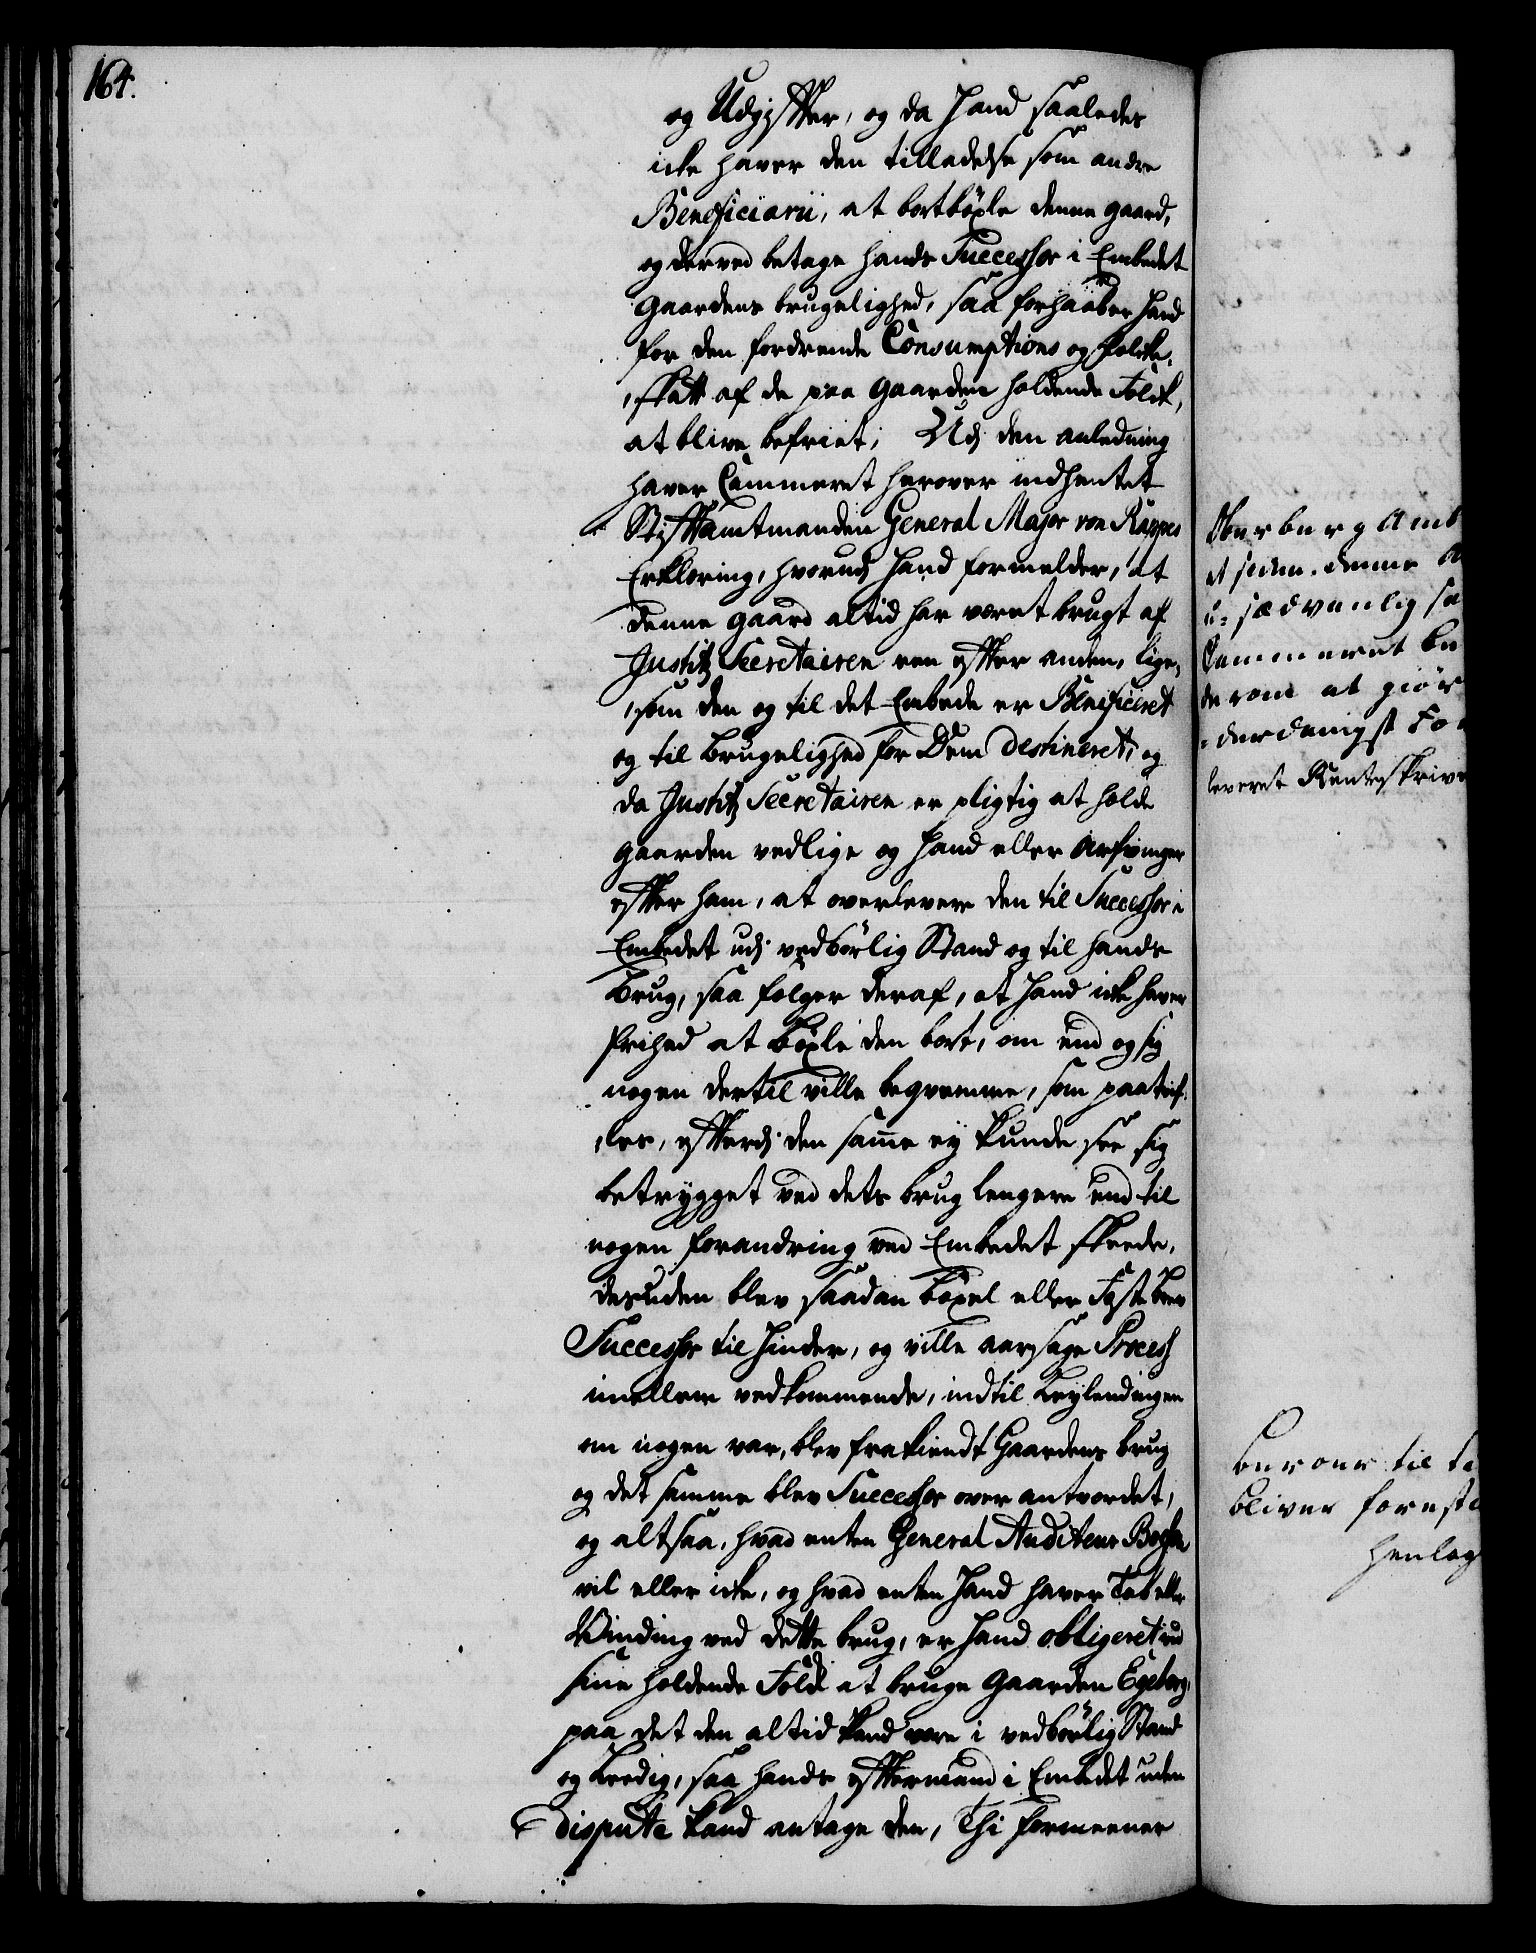 164.
og Udgifter, og da Hand saaledes
icke haver den tilladelse som andre
Beneficiarii, at bortböxle denne gaard,
og derved betage hands Successor i Embedet
Gaardens brugelighed, saa forhaaber Hand
for den fordrende Consumptions og Folke-
skatt af de paa Gaarden holdende Folck,
at blive befriet; Udj den anledning
haver Cammeret herover indhentet
Stiftamtmanden General Major von Rappes
Erklæring, hvorudj Hand formelder, at
denne gaard altid har været brugt af
Justitz Secretairen een efter anden, lige-
som den og til det Embede er Beneficeret
og til brugelighed for Dem destineret, og
da Justitz Secretairen er pligtig at holde
Gaarden vedlige og Hand eller Arfvinger
efter ham, at overlevere den til Successor i
Embedet udj vedbörlig Stand og til hands
brug, saa følger deraf, at Hand icke haver
frihed at böxle den bort, om end og sig
nogen dertil ville beqvemme, som paatvif-
les, efterdj den samme ey kunde see sig
betrygget ved dets brug lengere end til
nogen forandring ved Embedet skeede,
desuden blev saadan böxel eller Feste brev
Successor til Hinder, og ville aarsage Process
imellem vedkommende, indtil Leylendingen
om nogen var, blev frakiendt Gaardens brug
og det samme blev Successor overantvordet,
og altsaa, hvad enten General Auditeur
vil eller icke, og hvad enten Hand haver Tab eller
Vinding ved dette brug, er Hand obligeret ved
sine holdende Folck at bruge Gaarden Egeberg,
paa det den altid kand være i vedbörlig Stand
og Leedig, saa hands eftermand i Embedet uden
dispute kand antage den, Thi formeener
at siden denne
u-sædvanlig
Cammeret
derom at giör
leveret Renteskriver
til
bliver